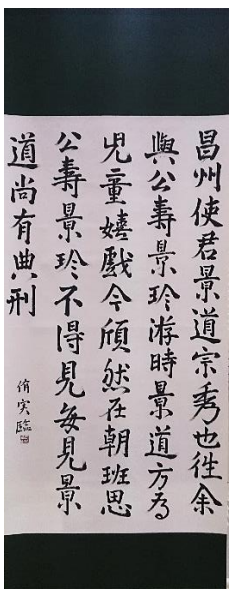 昌州使君景道宗秀也往余
與公壽景珍游時景道方為
兒童嬉戲今頎然在朝班思
公壽景珍不得見每見景
道尚有典刑
倩实臨